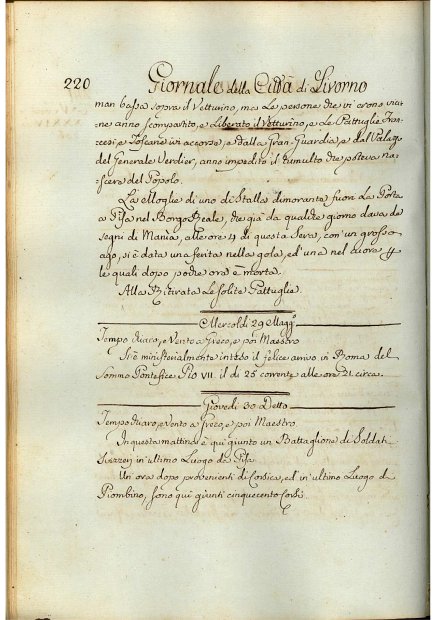 220 Giornale della Città di Livorno
man bassa sopra il Vetturino, ma Le persone che vi erono
anno scompartito, e Liberato il Vetturino, e Le Pattuglie Fran-
cesi, e Toscane ivi accorse, e dalla Gran-Guardia, e dal Palazo
del Generale Verdier, anno impedito il tumulto che poteva na-
scere dal Popolo.
La Moglie di uno di Stalla dimorante fuori La Porta
a Pisa nel Borgo Reale, che già da qualche giorno dava de
segni di Mania, alle ore 4 di questa Sera, con un grosso
ago, si è data una ferita nella gola, ed una nel cuore p
le quali dopo poche ore è morta.
Alla Ritirata Le solite Pattuglie.
Mercoldì 29 Magg.º
Tempo chiaro, e Vento a Greco, e poi Maestro
Si è ministerialmente inteso il felice arrivo in Roma del
Sommo Pontefice Pio VII. il dì 25 corrente alle ore 21 circa.
Giovedì 30 Detto
Tempo chiaro, e Vento a Greco, e poi Maestro
In questa mattina è qui giunto un Battaglione di Soldati
Svizzeri in ultimo Luogo da Pisa.
Un ora dopo provenienti di Corsica, ed in ultimo Luogo da
Piombino, sono qui giunti cinquecento Corsi.